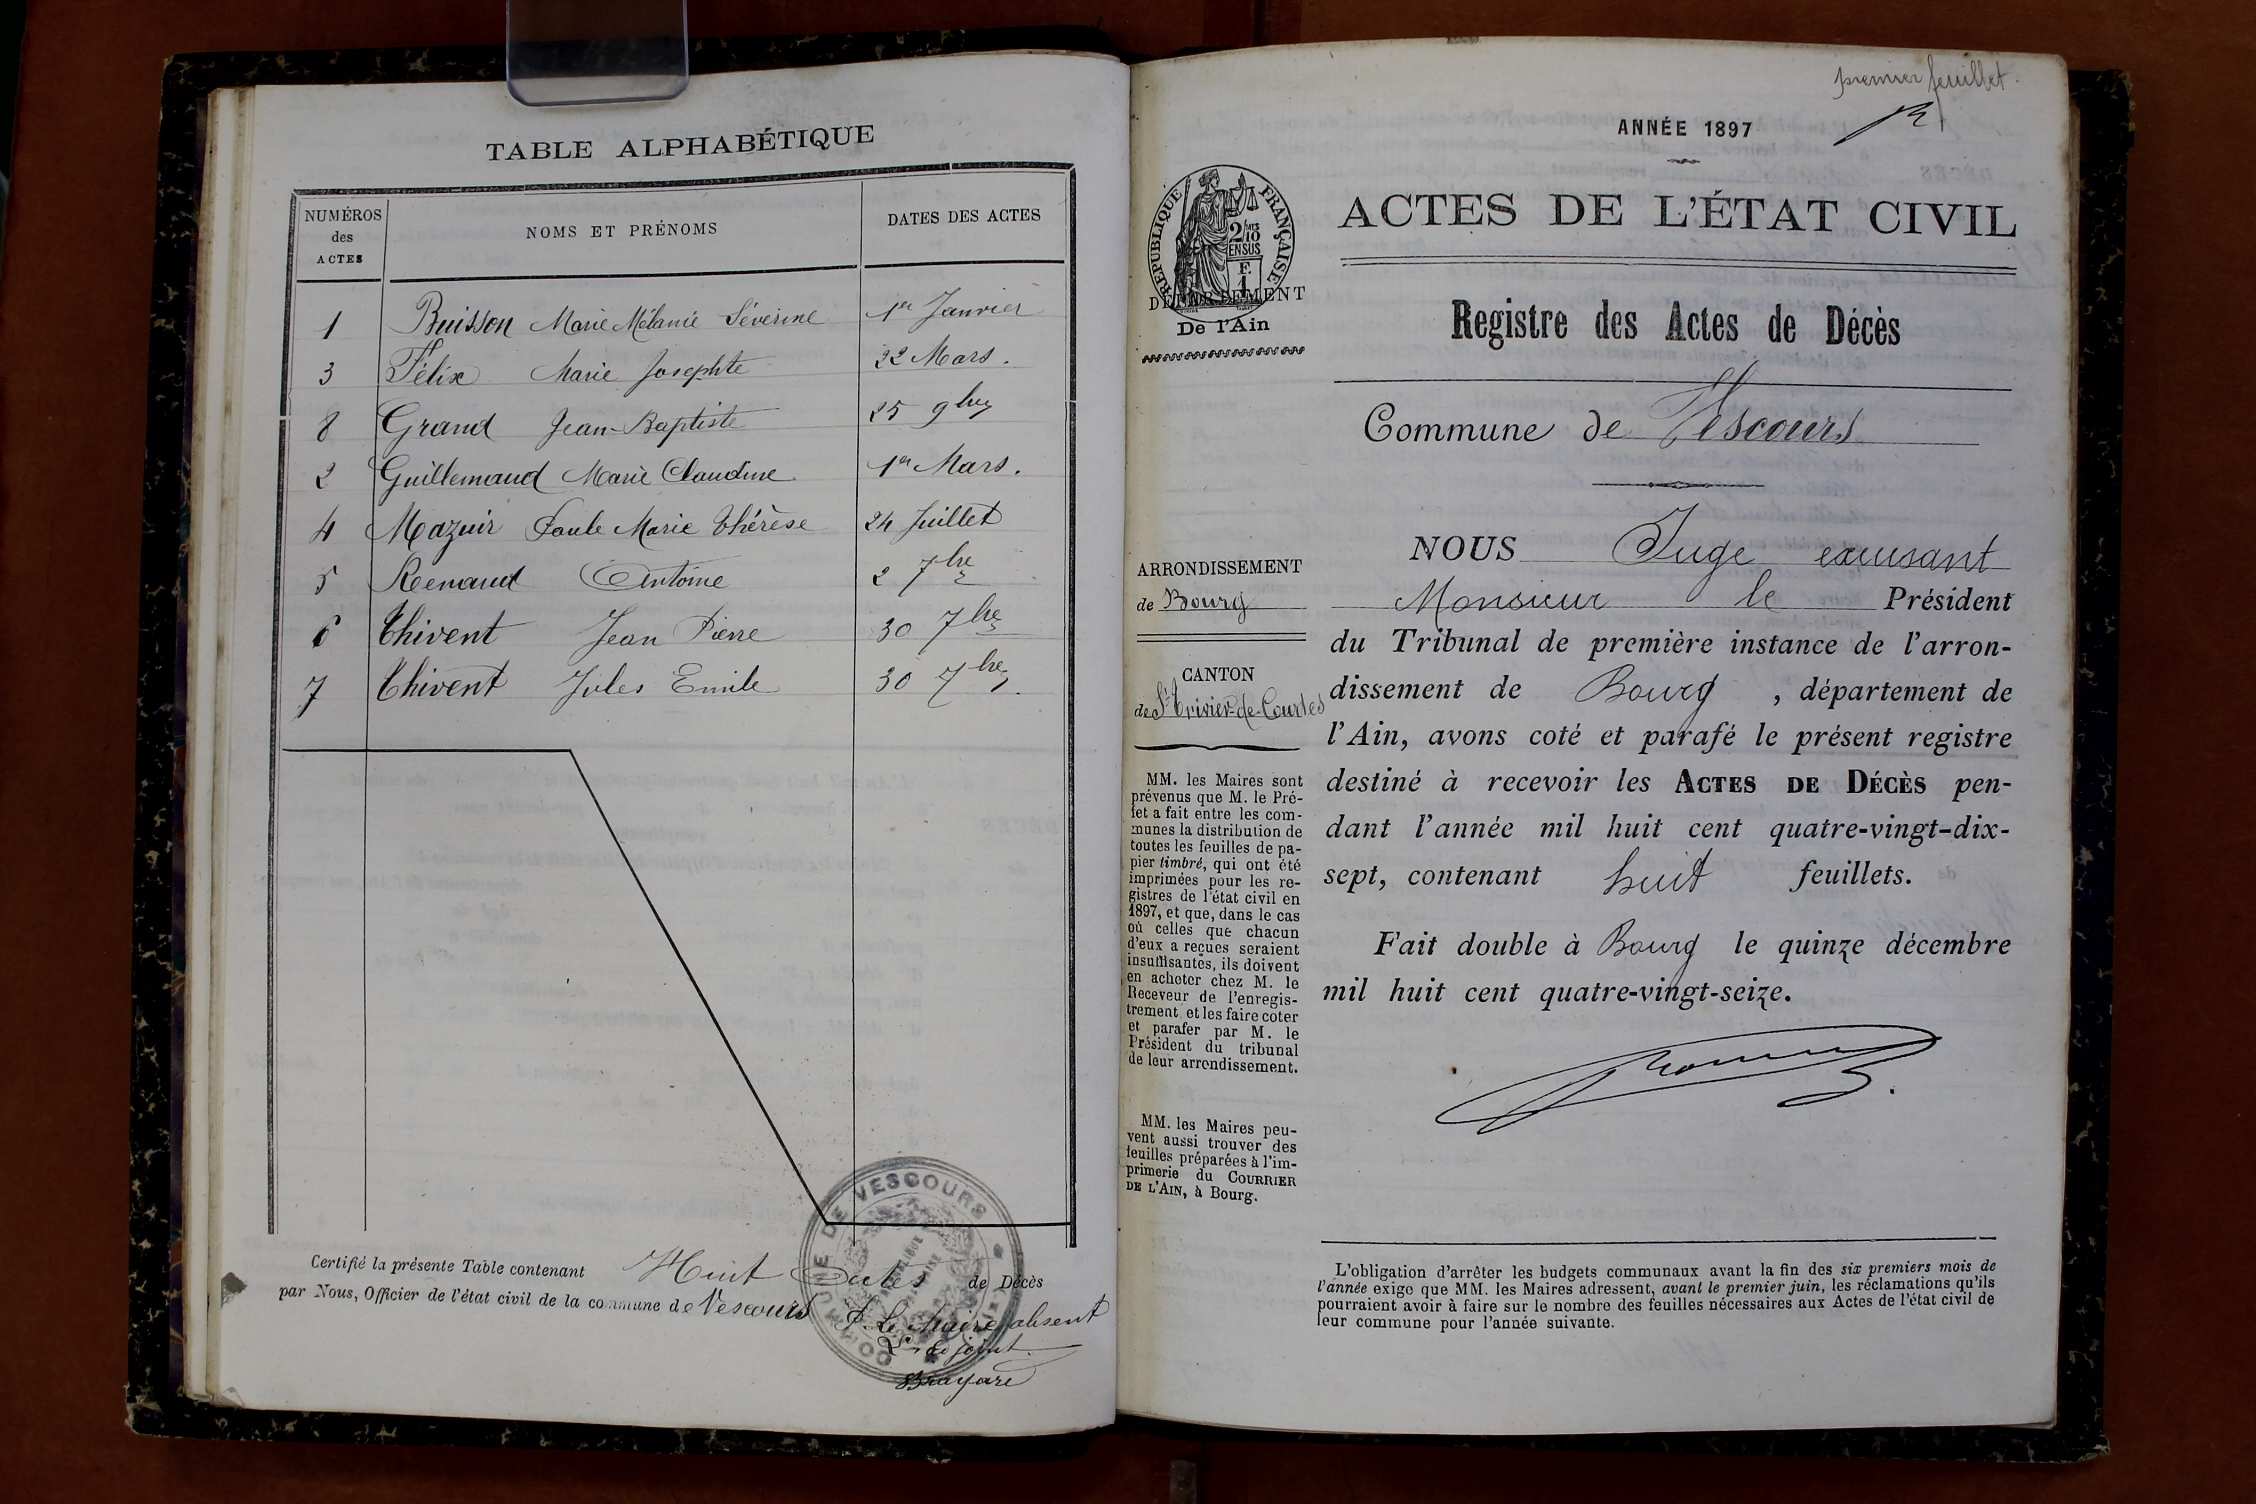 TABLE ALPHABÉTIQUE
NUMÉROS des ACTES
NOMS ET PRÉNOMS
DATES DES ACTES
1 Buisson Marie Mélanie Séverine 1er Janvier
3 Félix Marie Josephte 22 Mars.
8 Grand Jean-Baptiste 25 9bre
2 Guillemaud Marie Claudine 1er Mars.
4 Mazuir Paule Marie Thérèse 24 Juillet
5 Renaud Antoine 2 7bre
6 Thivent Jean Pierre 30 7bre
7 Thivent Jules Emile 30 7bre
Certifié la présente Table contenant Huit Actes de Décès
par Nous, Officier de l'état civil de la commune de Vescours
P. Le Maire absent
L'adjoint
Brayard
COMMUNE DE VESCOURS
premier feuillet.
ANNÉE 1897
RÉPUBLIQUE FRANÇAISE
2/10
EN SUS
F.
1
DÉPARTEMENT
De l'Ain
ACTES DE L'ÉTAT CIVIL
Registre des Actes de Décès
Commune de Vescours
ARRONDISSEMENT
de Bourg
CANTON
de St Trivier-de-Courtes
MM. les Maires sont
prévenus que M. le Pré-
fet a fait entre les com-
munes la distribution de
toutes les feuilles de pa-
pier timbré, qui ont été
imprimées pour les re-
gistres de l'état civil en
1897, et que, dans le cas
où celles que chacun
d'eux a reçues seraient
insuffisantes, ils doivent
en acheter chez M. le
Receveur de l'enregis-
trement et les faire coter
et parafer par M. le
Président du tribunal
de leur arrondissement.
MM. les Maires peu-
vent aussi trouver des
feuilles préparées à l'im-
primerie du COURRIER
DE L'AIN, à Bourg.
NOUS Juge excusant
Monsieur le Président
du Tribunal de première instance de l'arron-
dissement de Bourg, département de
l'Ain, avons coté et parafé le présent registre
destiné à recevoir les ACTES DE DÉCÈS pen-
dant l'année mil huit cent quatre-vingt-dix-
sept, contenant huit feuillets.
Fait double à Bourg le quinze décembre
mil huit cent quatre-vingt-seize.
L'obligation d'arrêter les budgets communaux avant la fin des six premiers mois de
l'année exige que MM. les Maires adressent, avant le premier juin, les réclamations qu'ils
pourraient avoir à faire sur le nombre des feuilles nécessaires aux Actes de l'état civil de
leur commune pour l'année suivante.